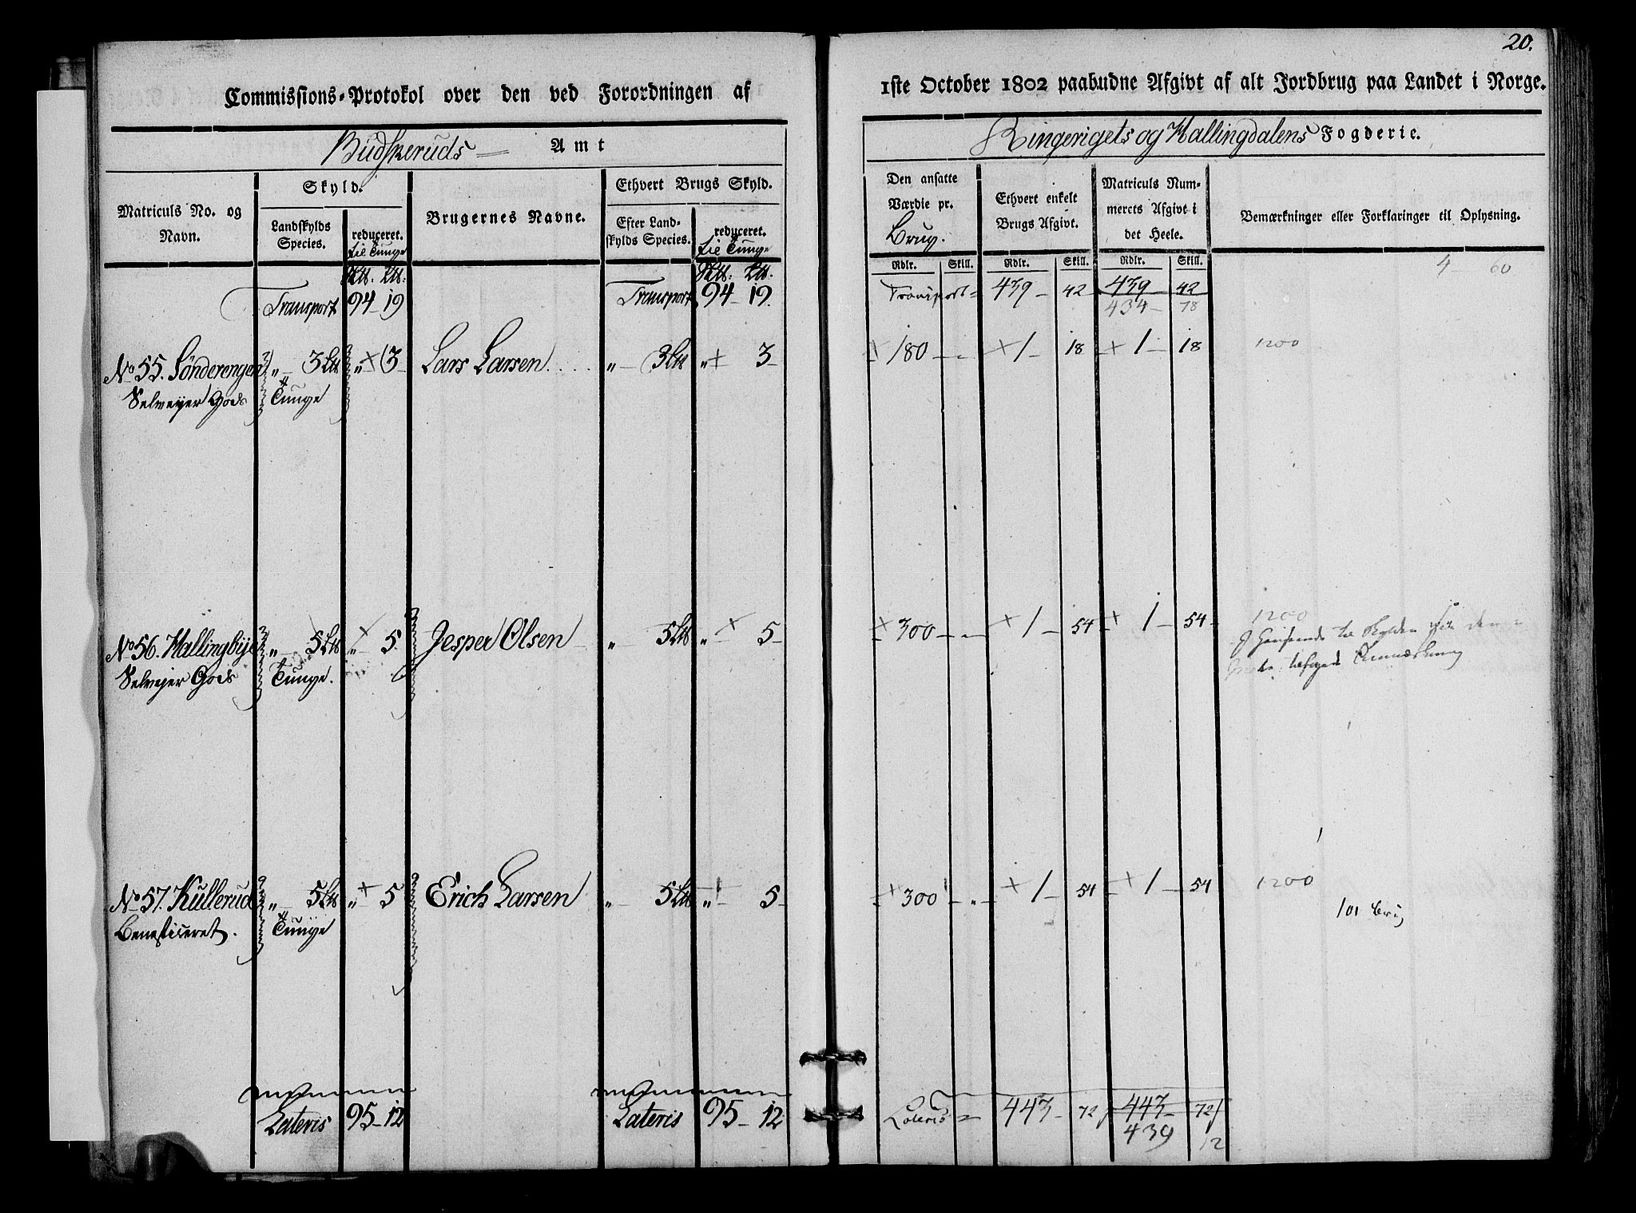 20.
Commissions-Protokol over den ved Forordningen af
1ste October 1802 paabudne Afgivt af alt Jordbrug paa Landet i Norge.
Budskeruds Amt
Ringerigets og Hallingdalens Fogderie.
Matriculs No. og Navn.
Skyld.
Landskylds Species.
reduceret.
til Tunge
Brugernes Navne.
Ethvert Brugs Skyld.
Efter Landskylds Species.
reduceret.
til Tunge
Den ansatte Værdie pr. Brug.
Ethvert enkelt Brugs Afgivt.
Matriculs Nummerets Afgivt i det Heele.
Bemærkninger eller Forklaringer til Oplysning.
Rdlr. Skill. Rdlr. Skill. Rdlr. Skill.
4 60
Transport 94 - 19 Transport 94 - 19 Transport 439 - 42 439 - 42
434 - 78
No 55. Sønderengen " - 3 " + 3 Lars Larsen " - 3 " + 3 - + 180 - + 1 - 18 + 1 - 18 1200
Selveyer Gods Tunge
No 56. Hallingbye " - 5 " + 5 Jesper Olsen " 5 " + 5 - + 300 - + 1 - 54 + 1 - 54 - 1200
Selvejer Gods Tunge.
No 57. Kullerud " - 5 " + 5 Erich Larsen " 5 " + 5 - + 300 - " - + 1 - 54 + 1 - 54 1200
Beneficeret. Tunge
101
Lateris 95 - 12 Lateris 95 - 12 Lateris 443 - 72 443 - 72
439 12